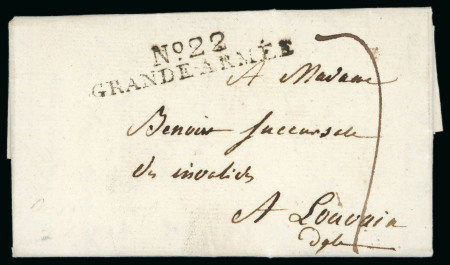 No. 22
GRANDE ARMÉE
A Madame
Benoist Succursale
des invalides
A Louvain
Dyle